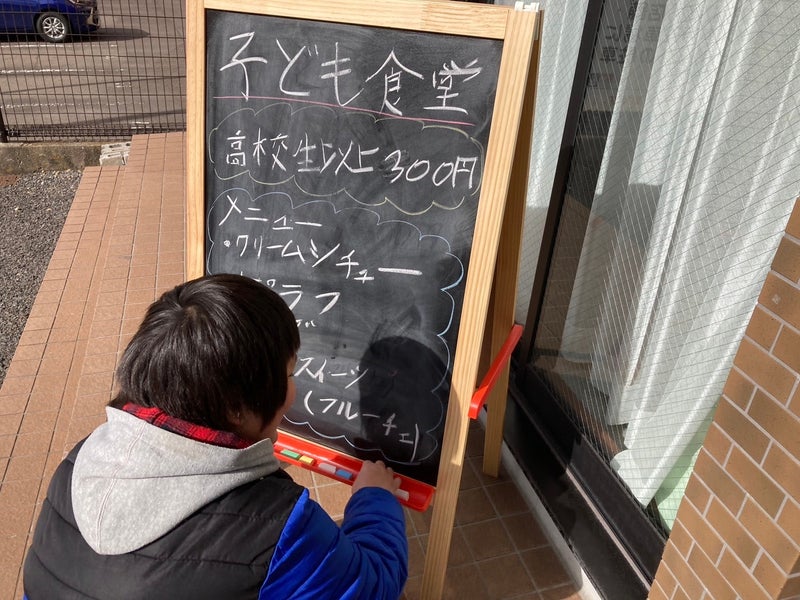 子ども食堂
高校生以上300円
メニュー
・クリームシチュー
ピラフ
スイーツ
(フルーチェ)